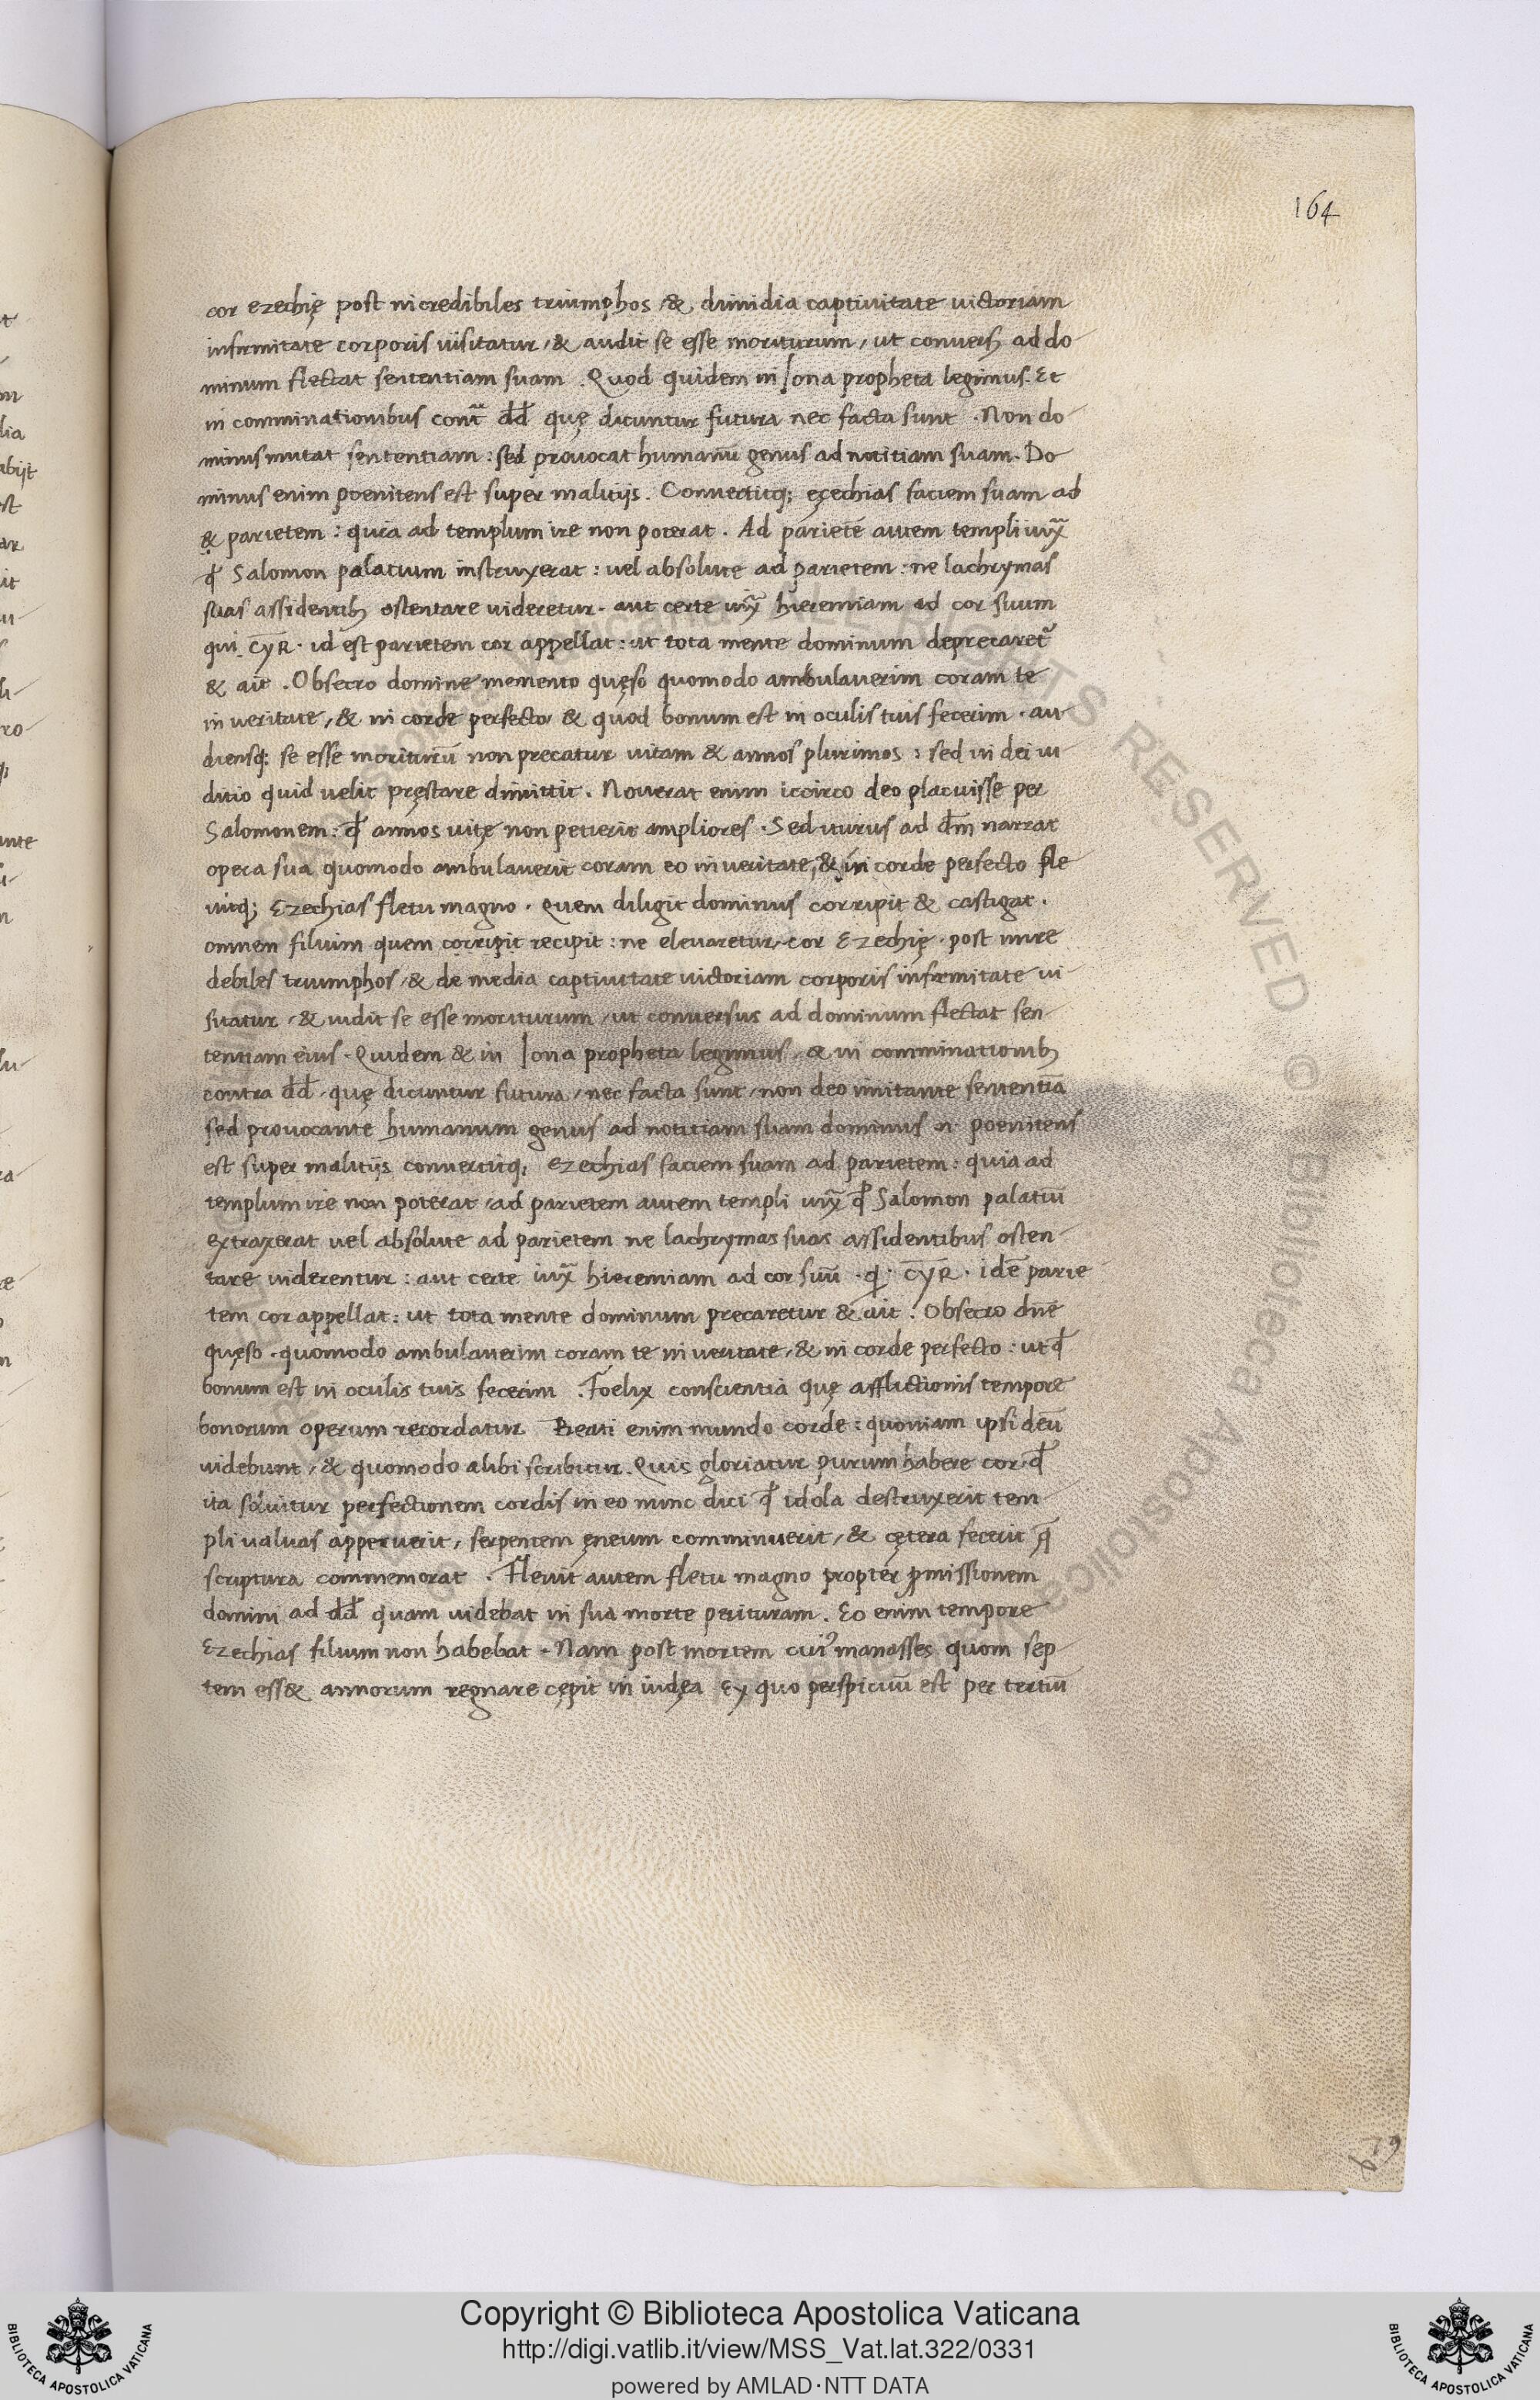 164
cor ezechię post incredibiles triumphos / & dimidia captiuitate uictoriam
infirmitate corporis uisitatur / & audit se esse moriturum / ut conuersꝫ ad do-
minum flectat sententiam suam . Quod quidem in Iona propheta legimus . Et
in comminationibus cont̃ dd̄ quę dicuntur futura nec facta sunt . Non do-
minus mutat sententiam : sed prouocat humanū genus ad notitiam suam . Do-
minus enim poenitens est super malitijs . Conuertitq; ezechias faciem suam ad
& parietem : quia ad templum ire non poterat . Ad parietē autem templi iux̃
ꝙ Salomon palatium instruxerat : uel absolute ad parietem : ne lachrymas
suas assidentibꝫ ostentare uideretur . aut certe iux̃ hieremiam ad cor suum
qui . CYR . id est parietem cor appellat : ut tota mente dominum deprecaret᷑
& ait . Obsecro domine memento quęso quomodo ambulauerim coram te
in ueritate , & in corde perfecto & quod bonum est in oculis tuis fecerim . au-
diensq; se esse moriturū non precatur uitam & annos plurimos : sed in dei iu-
ditio quid uelit pręstare dimittit . Nouerat enim iccirco deo placuisse per
Salomonem : ꝙ annos uitę non petierit ampliores . Sed iturus ad dm̄ narrat
opera sua quomodo ambulauerit coram eo in ueritate , & in corde perfecto fle
uitq; Ezechias fletu magno . Quem diligit dominus corripit & castigat .
omnem filium quem corripit recipit : ne eleuaretur cor Ezechię . post incre
debiles triumphos / & de media captiuitate uictoriam corporis infirmitate ui-
sitatur / & audit se esse moriturum / ut conuersus ad dominum flectat sen-
tentiam eius . Quidem & in Iona propheta legimus , & in comminationibꝫ
contra dd̄ . quę dicuntur futura / nec facta sunt / non deo imitante sententiā
sed prouocante humanum genus ad notitiam suam dominus .n. poenitens
est super malitijs conuertitq; ezechias faciem suam ad parietem : quia ad
templum ire non poterat / ad parietem autem templi iux̃ ꝙ Salomon palatiū
extraxerat uel absolute ad parietem ne lachrymas suas assidentibus osten-
tare uiderentur : aut certe iux̃ hieremiam ad cor suū . q . CYR . idē parie
tem cor appellat : ut tota mente dominum precaretur & ait . Obsecro dn̄e
quęso . quomodo ambulauerim coram te in ueritate , & in corde perfecto : ut ꝙ
bonum est in oculis tuis fecerim . Foelix conscientia quę afflictionis tempore
bonorum operum recordatur Beati enim mundo corde : quoniam ipsi deū
uidebunt , & quomodo alibi scribitur . Quis gloriatur purum habere cor . ꝙ
ita soluitur perfectionem cordis in eo nunc dici ꝙ idola destruxerit tem-
pli ualuas apperuerit , serpentem ęneum comminuerit , & cętera fecerit q̄
scriptura commemorat . Fleuit autem fletu magno propter ꝓmissionem
domini ad dd̄ quam uidebat in sua morte perituram . Eo enim tempore
Ezechias filium non habebat . Nam post mortem cuiꝰ manasses quom sep-
tem ess& annorum regnare cępit in iudęa Ex quo perspicuū est per tertiū
Copyright © Biblioteca Apostolica Vaticana
http://digi.vatlib.it/view/MSS_Vat.lat.322/0331
powered by AMLAD·NTT DATA